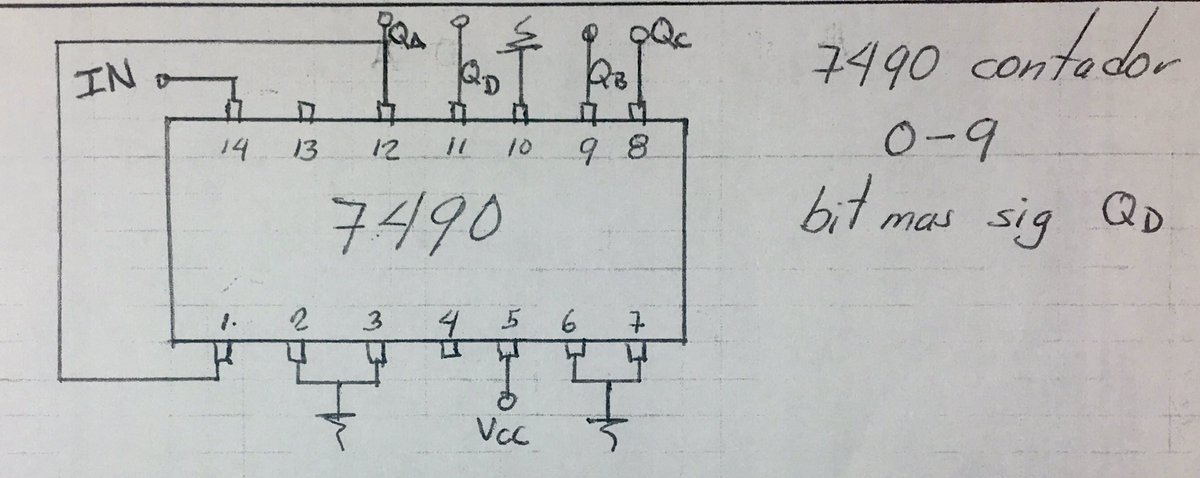 QA
QD
QB
QC
IN
14 13 12 11 10 9 8
7490
1 2 3 4 5 6 7
Vcc
7490 contador
0-9
bit mas sig QD